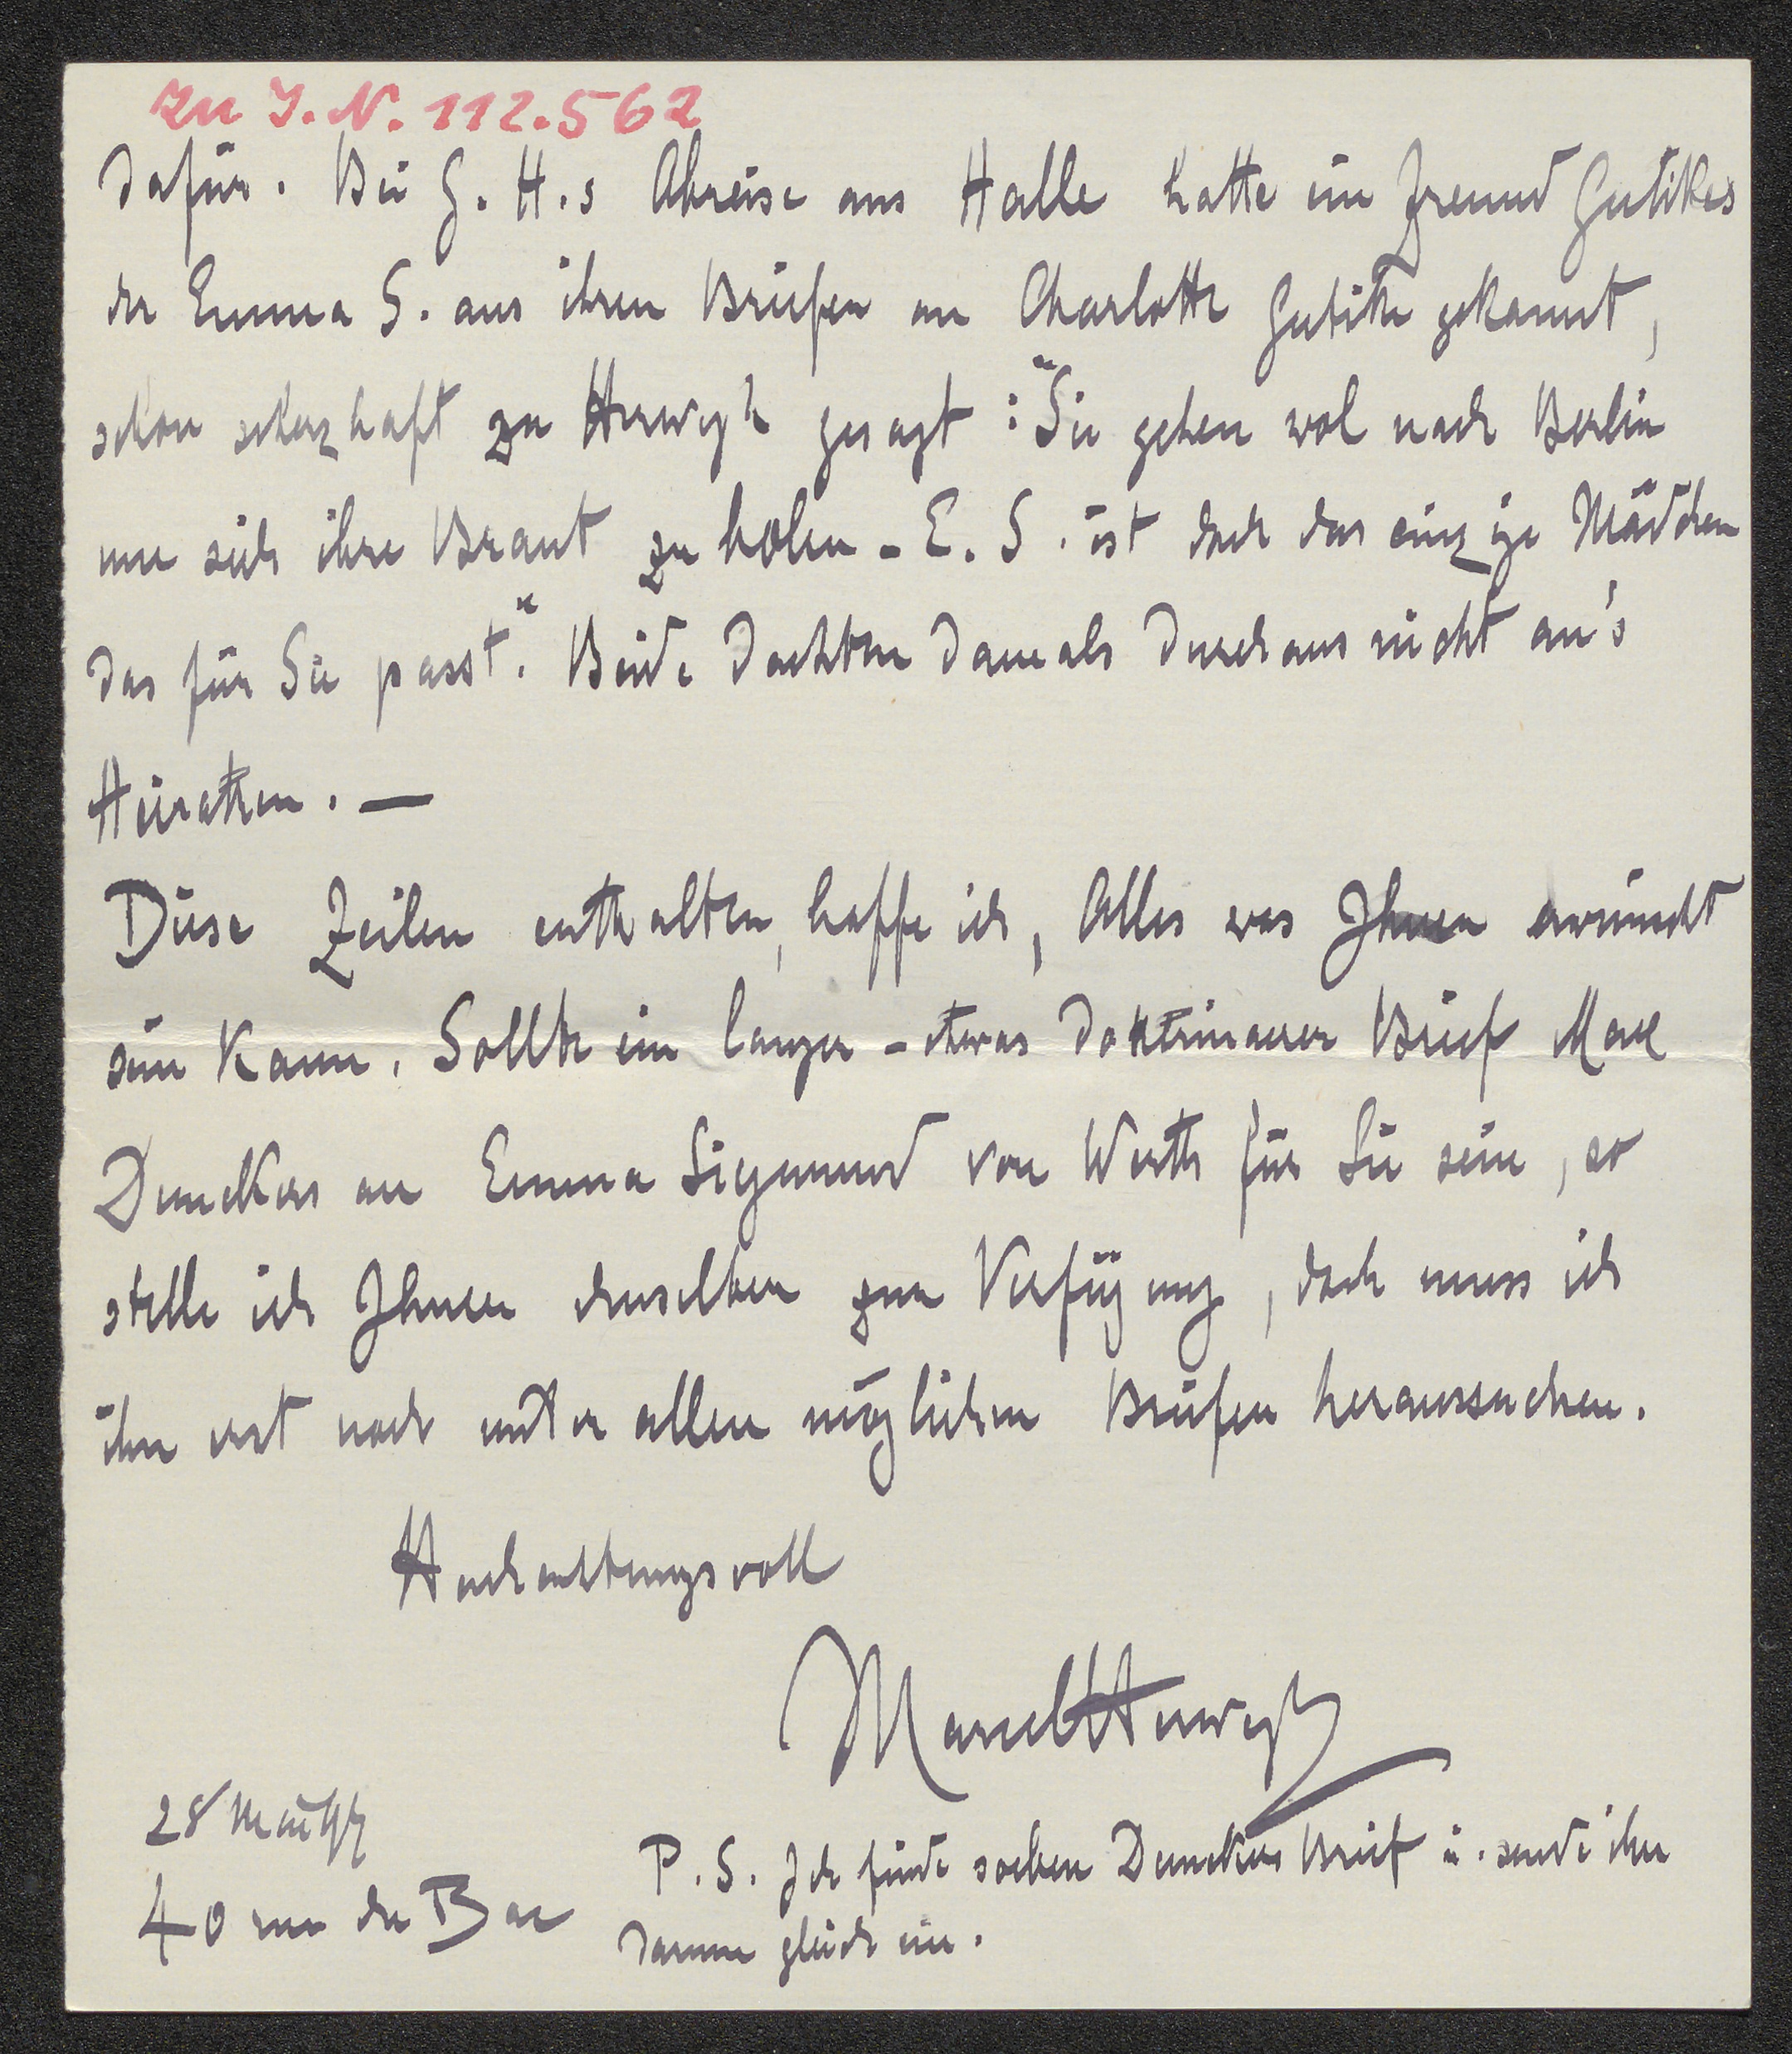 zu I.N. 112.562
dafür. Bei G. H.s Abreise aus Halle hatte ein Freund Gutikes
der Emma S. aus ihren Briefen an Charlotte Gutike gekannt,
schon scherzhaft zu Herwegh gesagt: "Sie gehen wol nach Berlin
um sich ihre Braut zu holen - E. S. ist doch das einzige Mädchen
das für Sie passt." Beide dachten damals durchaus nicht an's
Heirathen. —
Diese Zeilen enthalten, hoffe ich, Alles was Ihnen erwünscht
sein kann. Sollte ein langer - etwas doktrinaerer Brief Max
Dunckers an Emma Siegmund von Werth für Sie sein, so
stelle ich Ihnen denselben zur Verfügung, doch muss ich
ihn erst noch unter allen möglichen Briefen heraussuchen.
Hochachtungsvoll
Marcel Herwegh
28 Mai
40 rue du Bac
P.S. Ich finde soeben Dunckers Brief u. sende ihn
darum gleich ein.